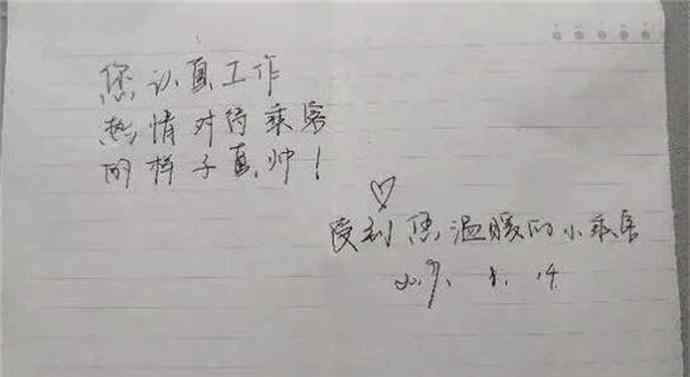 您认真工作
热情对待乘客
的样子真帅!
♡
受到您温暖的小乘客
2019. 1. 14